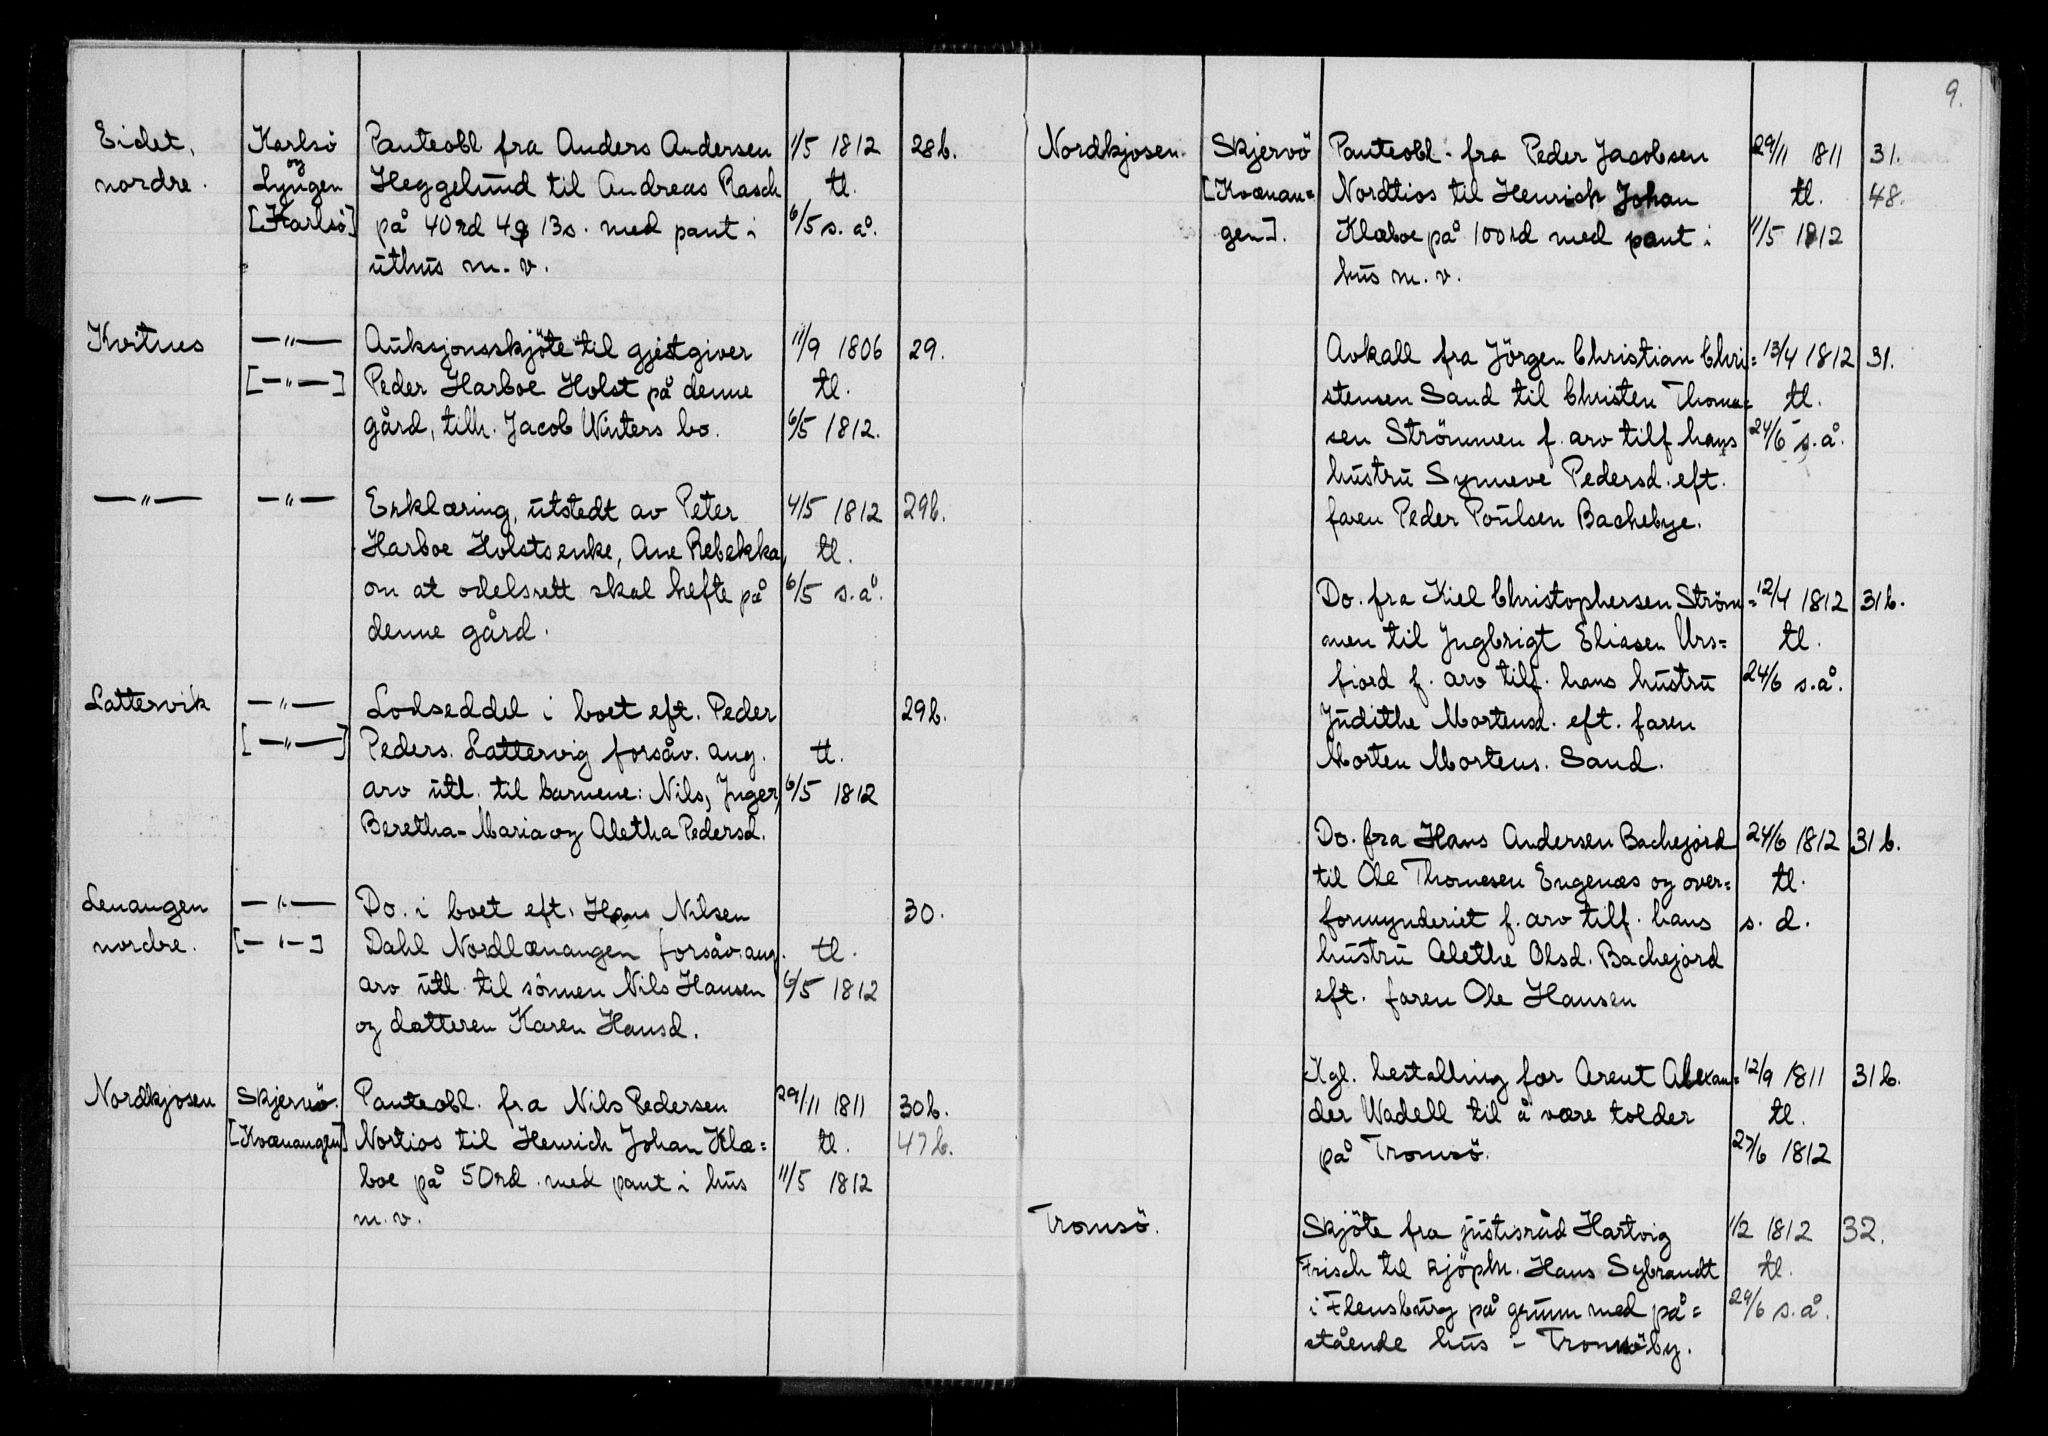 9.
Eidet, Karlsö Panteobl fra Anders Andersen 1/5 1812 28b.
og
nordre. Lyngen Heggelund til Andreas Rasch tl.
[Karlsö] på 40rd 4 13s. med pant i 6/5 s.å.
uthus m.v.
Kvitnes —"— Auksjonsskjöte til gjestgiver 11/9 1806 29.
[—"—] Peder Harboe Holst på denne tl.
gård, tilh. Jacob Winters bo. 6/5 1812.
—"— —"— Erklæring, utstedt av Peter 4/5 1812 29b.
Harboe Holsts enke, Ane Rebekka, tl.
om at odelsrett skal hefte på 6/5 s.å.
denne gård.
Lattervik —"— Lodseddel i boet eft. Peder 29b.
[—"—] Peders. Lattervig forsåv. ang. tl.
arv utl. til barnene: Nils, Inger, 6/5 1812
Beretha-Maria og Aletha Pedersd.
Lenangen —"— Do. i boet eft. Hans Nilsen 30.
nordre. [—"—] Dahl Nordlænangen forsåv. ang. tl.
arv utl. til sönnen Nils Hansen 6/5 1812
og datteren Karen Hansd.
Nordkjosen Skjervö. Panteobl. fra Nils Pedersen 29/11 1811 30b.
[Kvænangen] Nortios til Henrich Johan Klæ= tl. 47b.
boe på 50rd. med pant i hus 11/5 1812
m.v.
Nordkjosen. Skjervö Panteobl. fra Peder Jacobsen 29/11 1811 31.
[Kvænan= Nordtios til Henrich Johan tl. 48.
gen]. Klæboe på 100rd med pant i 11/5 1812
hus m.v.
Avkall fra Jörgen Christian Chri= 13/4 1812 31.
stensen Sand til Christen Thoma= tl.
sen Strömmen f. arv tilf. hans 24/6 s.å.
hustru Synneve Pedersd. eft.
faren Peder Poulsen Bachebye.
Do. fra Kiel Christophersen Ström= 12/4 1812 31b.
men til Ingbrigt Eliasen Urs= tl.
fiord f. arv tilf. hans hustru 24/6 s.å.
Judithe Mortensd. eft. faren
Morten Mortens. Sand.
Do. fra Hans Andersen Bachejord 24/6 1812 31b.
til Ole Thomesen Engenæs og over= tl.
formynderiet f. arv tilf. hans s. d.
hustru Alethe Olsd. Bachejord
eft. faren Ole Hansen
Kgl. bestalling for Arent Alexan= 12/9 1811 31b.
der Wadell til å være tolder tl.
på Tromsö. 27/6 1812
Tromsö. Skjöte fra justisråd Hartvig 1/2 1812 32.
Frisch til kjöpm. Hans Sybrandt tl.
i Flensburg på grunn med på= 29/6 s.å.
stående hus i Tromsöby.